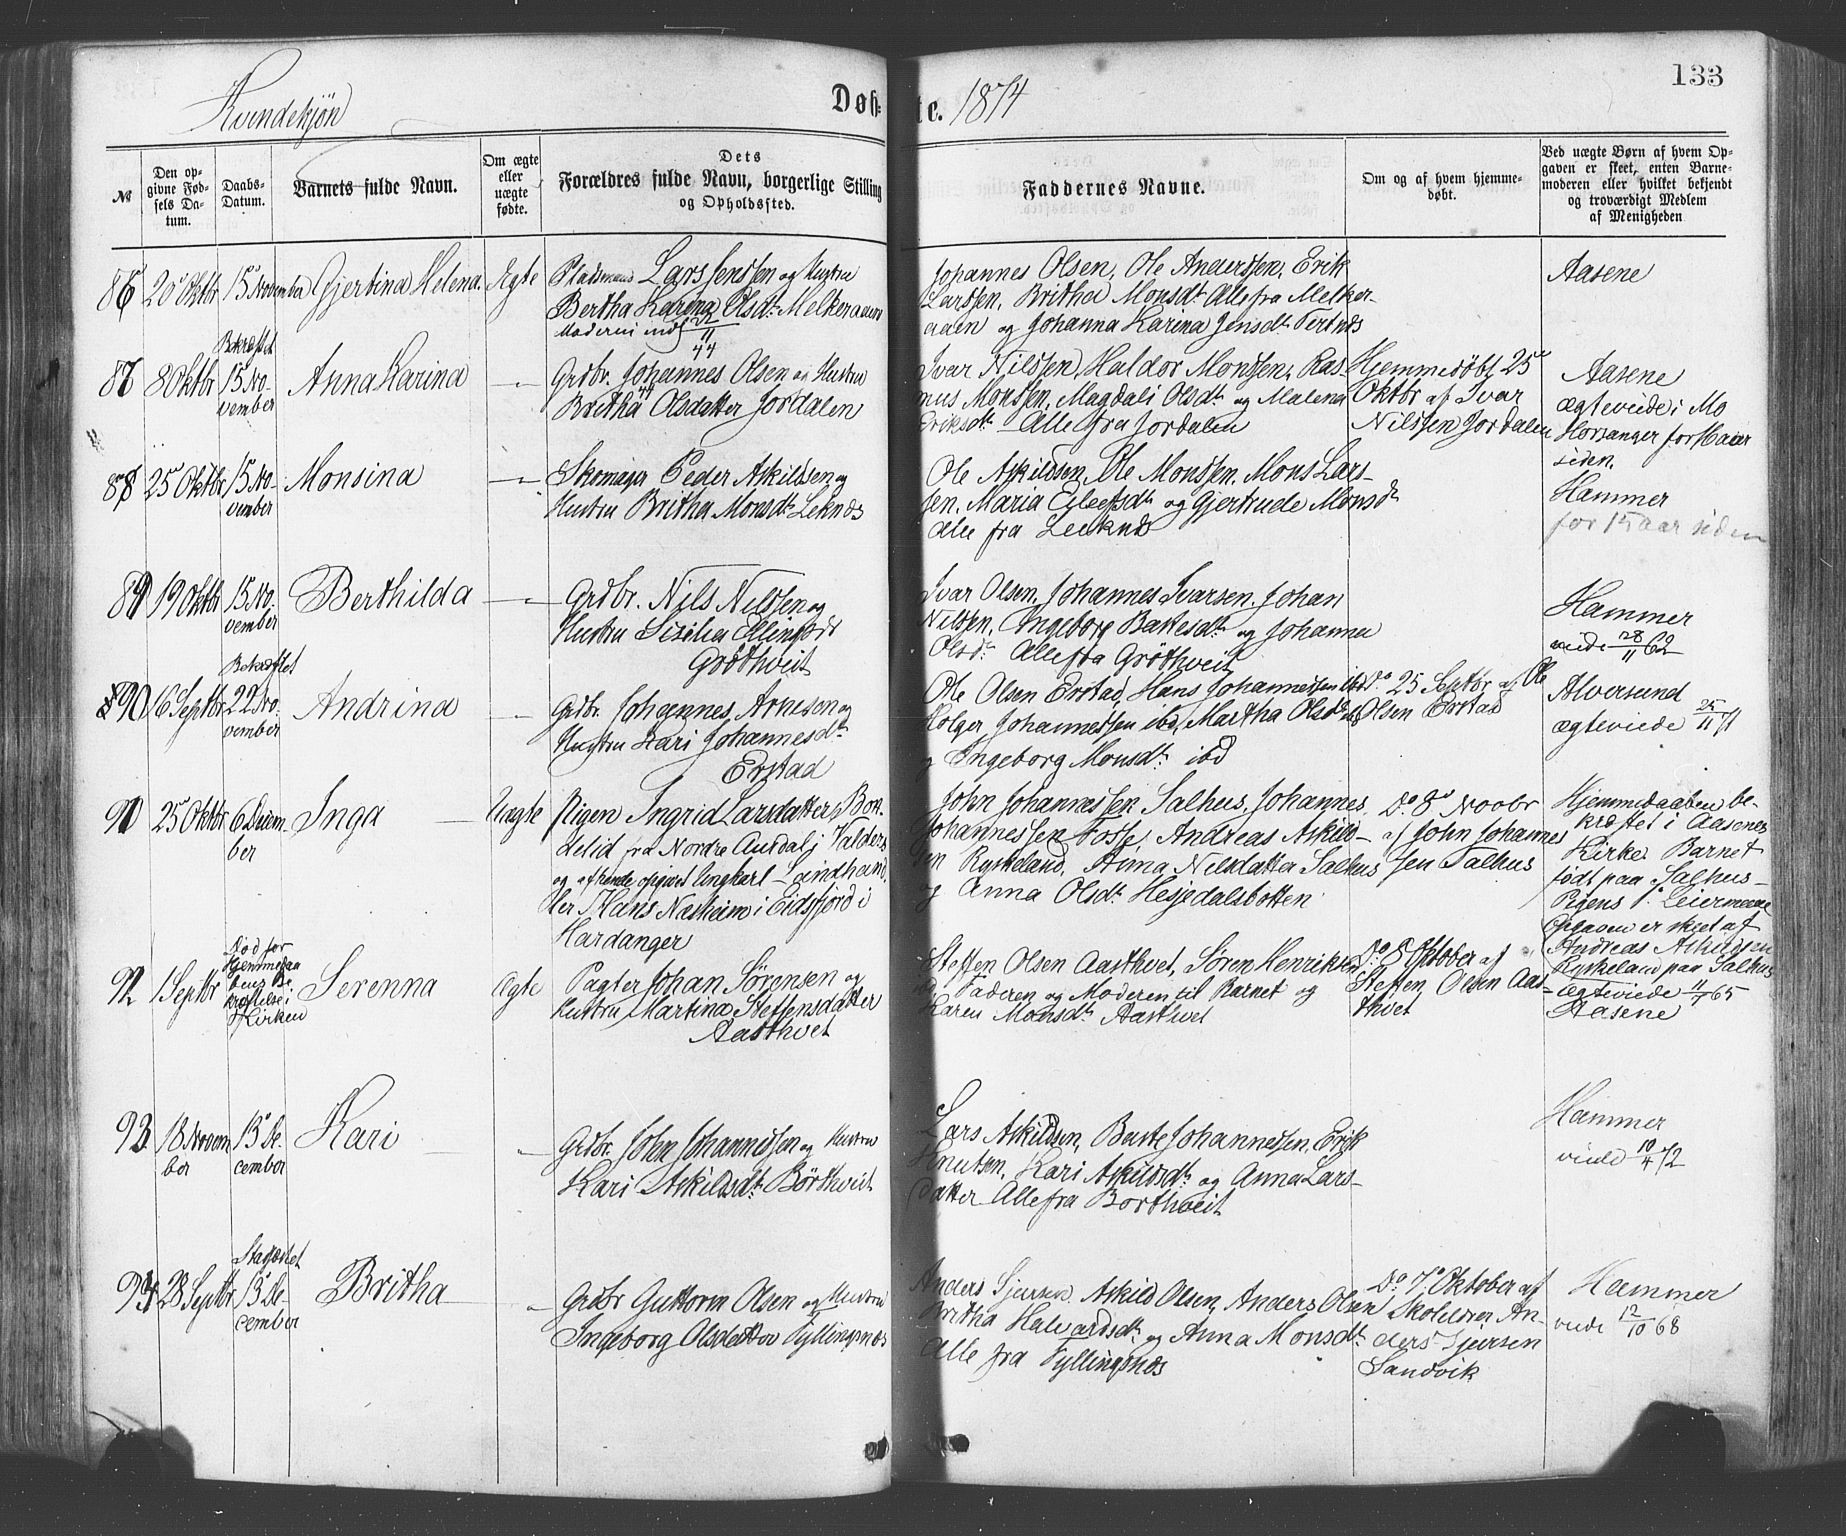 133
Kvindekjøn
Døbte. 1874
№
Den opgivne Fødsels Datum.
Daabs-Datum.
Barnets fulde Navn.
Om ægte eller uægte fødte.
Dets Forældres fulde Navn, borgerlige Stilling og Opholdssted.
Faddernes Navne.
Om og af hvem hjemmedøbt.
Ved uægte Børn af hvem Opgaven er skeet, enten Barnemoderen eller hvilket bekjendt og troværdigt Medlem af Menigheden
86 20 Oktbr 15 November Gjertina Helena. Ægte
Pladsmand Lars Jenssen og Hustru
Bertha Karina Olsdt. Melkeraaen
Moderen indf 22/11 44
Johannes Olsen, Ole Anderssen, Erik
Larssen, Britha Monsdt. Alle fra Melker-
aaen og Johanna Karina Jensdt. Tertnes
Aasene
87 8 Oktbr
Bekræftet
15 No-
vember
Anna Karina
Grdbr. Johannes Olsen og Hustru
Britha Olsdatter Jordalen
Ivar Nilssen, Haldor Monssen, Ras-
mus Monssen, Magdali Olsdt. og Malena
Eriksdt. Alle fra Jordalen
Hjemmedøbt 25
Oktbr af Ivar
Nilssen Jordalen
Aasene
ægteviede i
88 25 Oktbr
15 No-
vember
Monsina
Skomager Peder Askildsen og
Hustru Britha Monsdt. Leknes
Ole Askildsen, Ole Monssen, Mons Lars-
sen, Maria Eileefsdt. og Gjertrude Monsdt
alle fra Leeknes
siden.
Hammer
for 15 Aar siden
89 19 Oktbr
15 No-
vember
Berthilda
Grdbr. Nils Nilssen og
Hustru Sizilia Ellingsdt
Grøthveit
Ivar Olsen, Johannes Ivarsen, Johan
Nilssen, Ingeborg Bakesdt. og Johanna
Olsdt. Alle fra Grøthveit
Hammer
viede 28/11 62
90 16 Septbr
Bekræftet
22 No-
vember
Andrina
Grdbr. Johannes Arnesen og
Hustru Kari Johannesdt.
Erstad
Ole Olsen Erstad, Hans Johannessen ibd
Holger Johannessen ibd, Martha Olsdt. ibd
og Ingeborg Monsdt. ibd
Do. 25 Septbr af Ole
Olsen Erstad
Alversund
ægteviede 25/11 71
91 25 Oktbr
6 Decem-
ber
Inga
Uægte
Pigen Ingrid Larsdatter Bott-
delid fra Nordre Aurdal i Valders
og afhende opgivet Ungkarl Landhand-
ler Hans Næsheim i Eidsfjord i
Hardanger
John Johannessen Salhus, Johannes
Johannessen Fosse, Andreas Askild-
sen Ryskeland, Anna Nilsdatter Salhus
og Anna Olsdt. Hesjedalsbotten
Do. 8 Novbr
af John Johannes-
sen Salhus
Hjemmedaaben be-
kræftet i Aasenes
Kirke. Barnet
født paa Salhus-
Pigens 1. Leiermaal
Opgaven er skeet af
Andreas Askildsen
Ryskeland paa Salhus
92 1 Septbr
Død før
Hjemmedaa
bens Be
kræftelse i
Kirken
Serenna
Ægte
Pagter Johan Sørensen og
Hustru Martina Steffensdatter
Aasthvet
Steffen Olsen Aasthvet, Søren Henriksen
ibd, Faderen og Moderen til Barnet og
Karen Monsdt. Aasthvet
Do. 8 Oktober af
Steffen Olsen Aas-
thvet
ægteviede 11/7 65
Aasene
93 18 Novem
ber
13 De-
cember
Kari
Grdbr. John Johannessen og Hustru
Kari Askildsdt. Börthveit
Lars Askildsen, Berte Johannessen, Erik
Knutsen, Kari Askildsdt. og Anna Lars-
datter Alle fra Borthveit
Hammer
viede 10/4 72
94 28 Septbr
Stadfæstet
13 De-
cember
Britha
Grdbr Guttorm Olsen og Hustru
Ingeborg Olsdatter Fyllingsnæs
Anders Sjursen, Askild Olsen, Anders Olsen
Britha Halvardsdt. og Anna Monsdt.
Alle fra Fyllingsnæs
Do. 7 Oktober af
Skolelærer An-
ders Sjursen
Sandvik
Hammer
viede 12/10 68